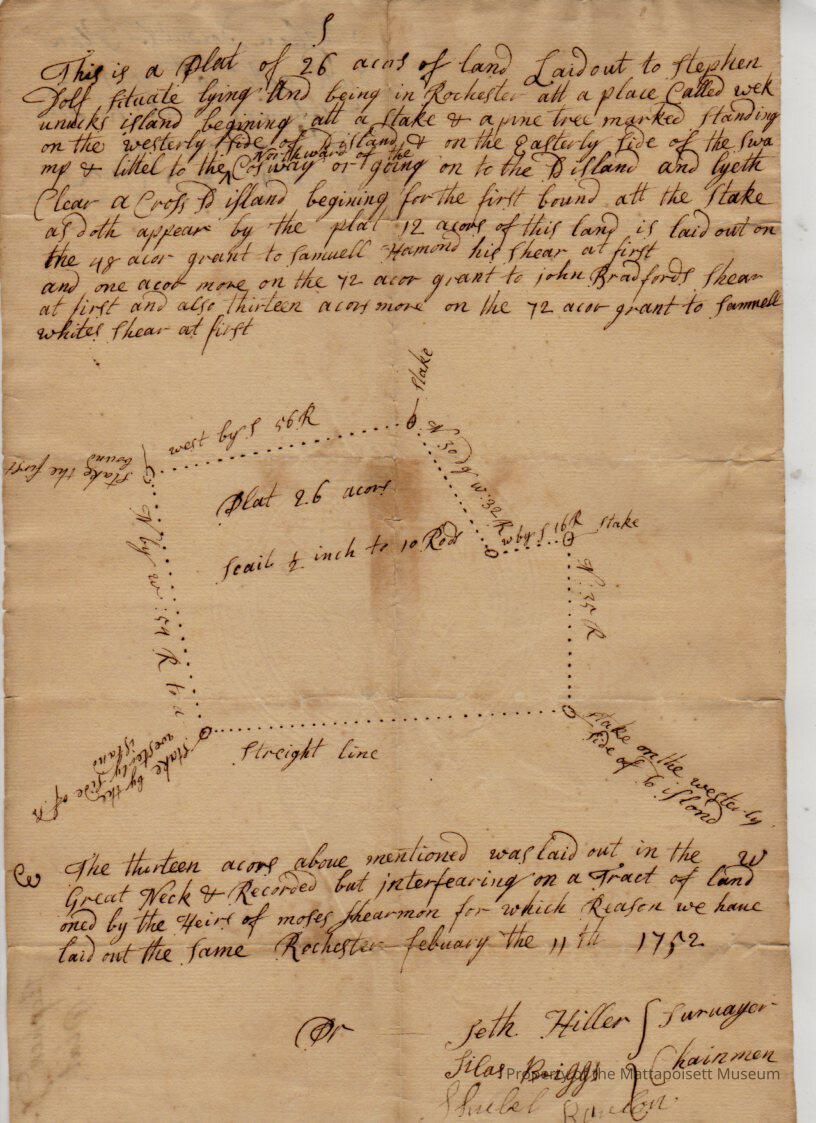 S
This is a Plat of 26 acors of land Laid out to Stephen
Dolf, Situate lying And being in Rochester att a place Called wek
unucks island begining att a Stake & a pine tree marked Standing
on the westerly Side of D island & on the Easterly Side of the Swa
mp & littel to the Northward of the Cosway or going on to the D island and lyeth
Clear a Cross D island begining for the first bound att the Stake
as doth appear by the plat 12 acors of this land is laid out on
the 48 acor grant to Samuell Hamond his Shear at first
and one acor more on the 72 acor grant to john Bradfords Shear
at first and also thirteen acors more on the 72 acor grant to Samuell
whites Shear at first
Stake
west by S 56 R
N 30 dg w: 32 R
Stake the first
bound
Plat 26 acors
w by S 16 R
Stake
Scail ½ inch to 10 Rods
N by w: 54 R to a
N: 35 R
Stake by the
westerly Side of
island
Streight line
Stake on the westerly
Side of D island
The thirteen acors above mentioned was laid out in the
Great Neck & Recorded but interfearing on a Tract of land
oned by the Heirs of moses Shearmon for which Reason we have
laid out the Same Rochester febuary the 11th 1752
Pr
Seth Hiller } Survayer
Silas Briggs } Chainmen
Property of the Mattapoisett Museum